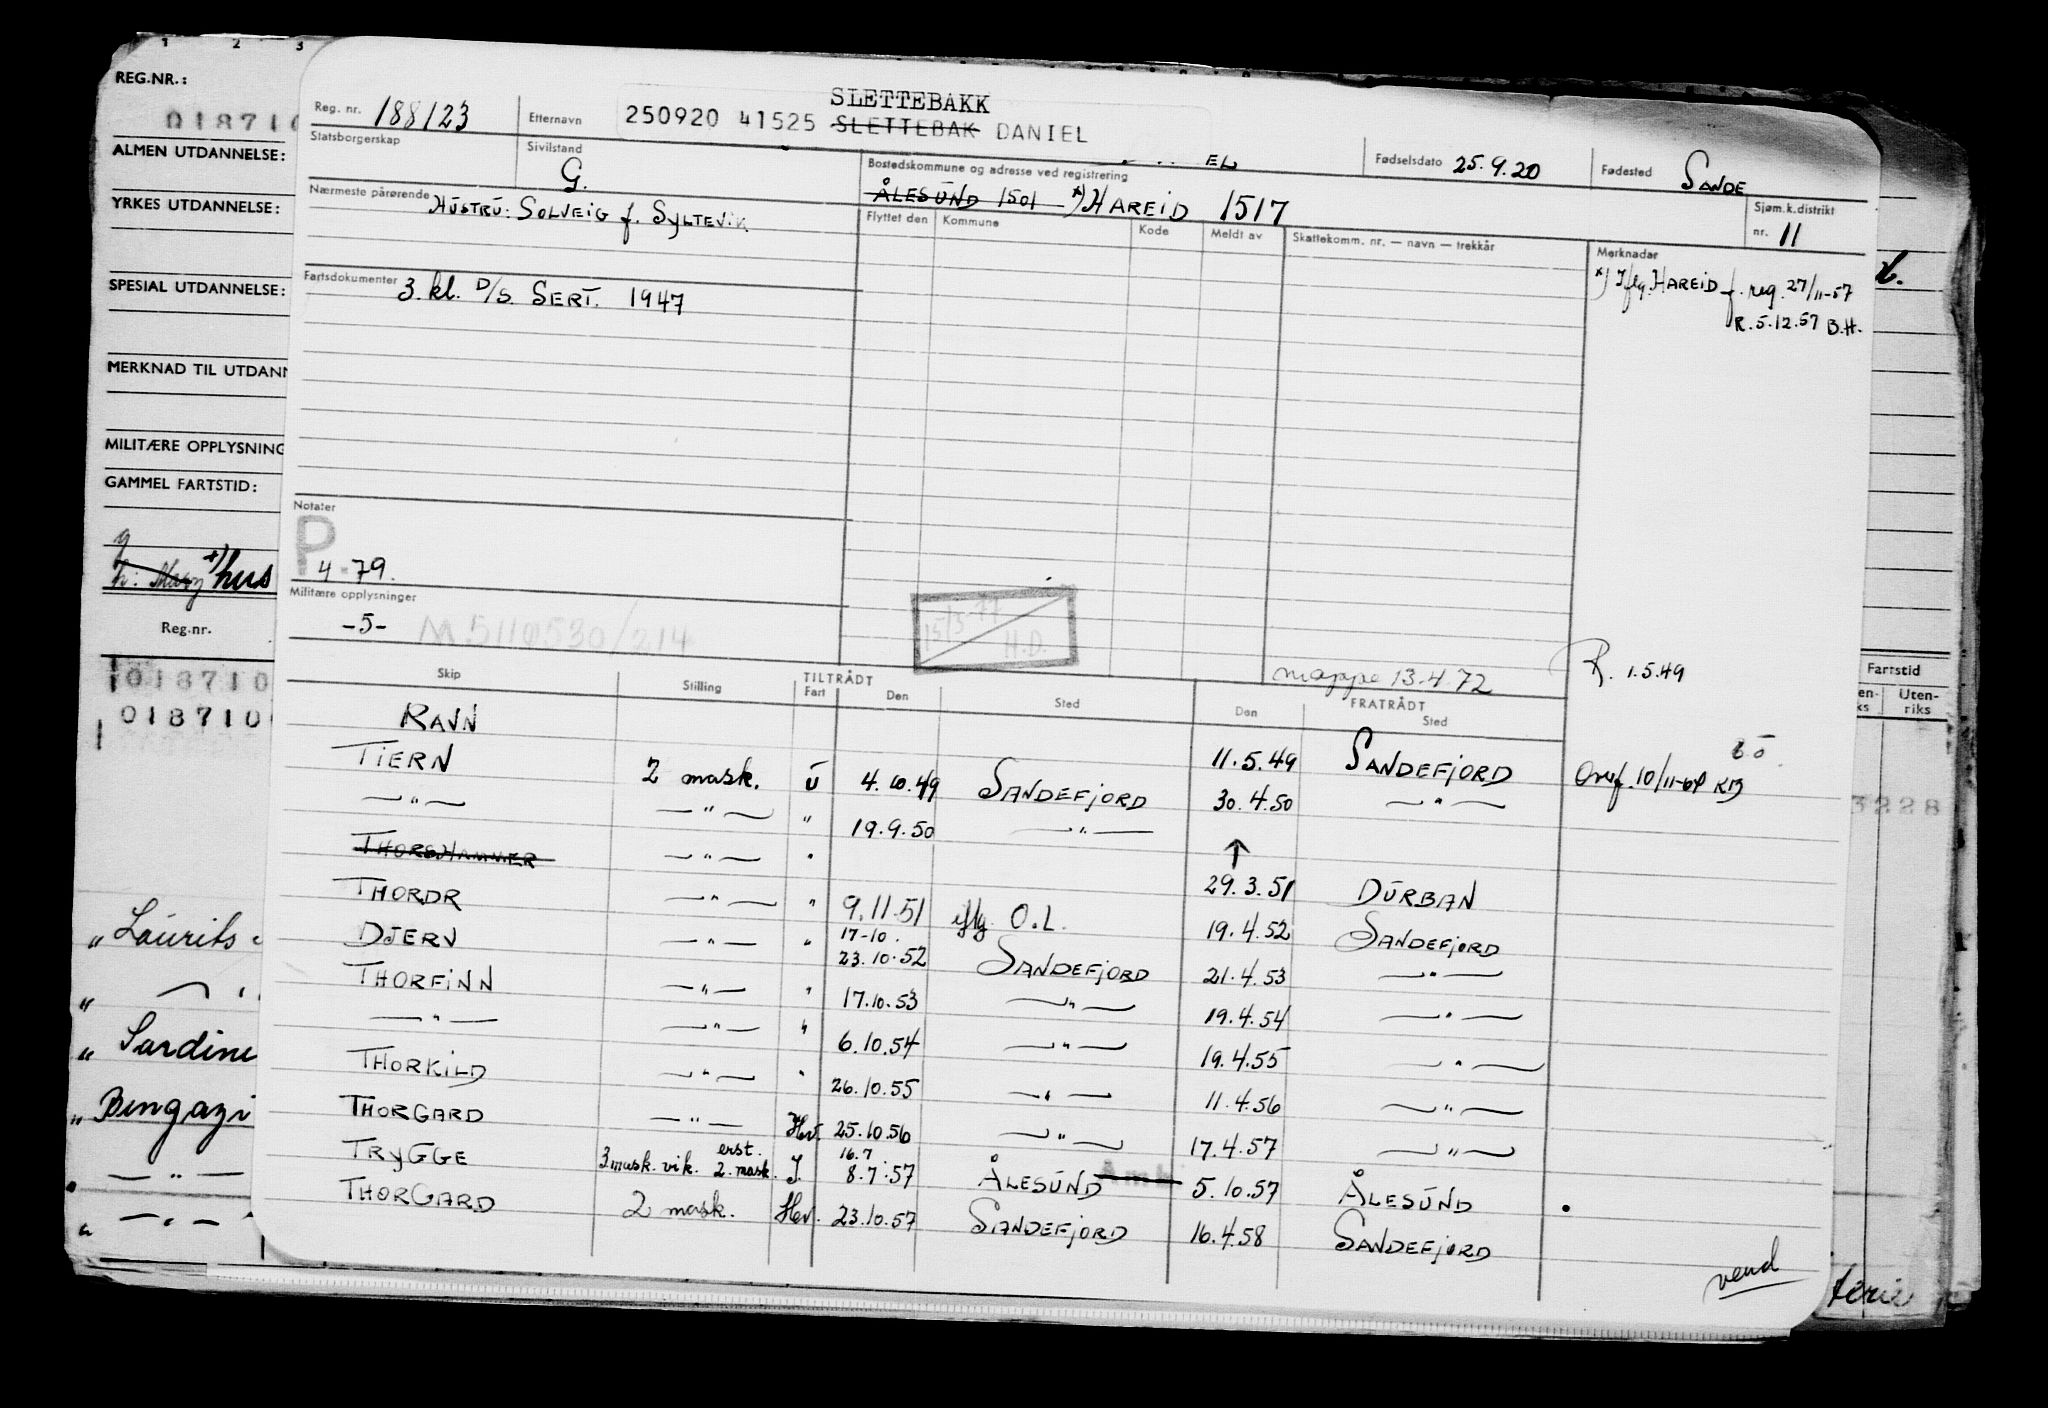 1 2 3
REG.NR.:
ALMEN UTDANNELSE:
YRKES UTDANNELSE:
SPESIAL UTDANNELSE:
MERKNAD TIL UTDANN
MILITÆRE OPPLYSNING
GAMMEL FARTSTID:
+) hus
Reg.nr.
018710
018710
„ Laurits
„ Sardine
„ Bengazi
— " —
Reg. nr. 188123
Etternavn
SLETTEBAKK
250920 41525 SLETTEBAK DANIEL
EL
Fødselsdato 25.9.20
Fødested SANDE
Statsborgerskap
Sivilstand
G.
Bostedskommune og adresse ved registrering
ÅLESUND 1501 x) HAREID 1517
Sjøm.k.distrikt
nr. 11
Nærmeste pårørende HUSTRU: SOLVEIG f. SYLTEVIK
Flyttet den Kommune Kode Meldt av Skattekomm. nr. — navn — trekkår
Merknader
x) Iflg. HAREID f. reg. 27/11-57
R. 5.12.57 B.H.
Fartsdokumenter 3. kl. D/S. SERT. 1947
Notater
P
4-79.
Militære opplysninger
-5- M 5110530/214
15/3-77
H.D.
mappe 13.4.72
R. 1.5.49
Skip Stilling TILTRÅDT Fart Den Sted Den FRATRÅDT Sted
RAVN 11.5.49 SANDEFJORD
TIERN 2 mask. U 4.10.49 SANDEFJORD 30.4.50 — " —
Overf. 10/11-64
— " — — " — " 19.9.50 — " — ↑
THORSHAMMER — " — " 29.3.51 DURBAN
THORDR — " — " 9.11.51 iflg O.L. 19.4.52 SANDEFJORD
DJERV — " — " 17-10. 23.10.52 SANDEFJORD 21.4.53 — " —
THORFINN — " — " 17.10.53 — " — 19.4.54 — " —
— " — — " — " 6.10.54 — " — 19.4.55 — " —
THORKILD — " — " 26.10.55 — " — 11.4.56 — " —
THORGARD — " — Hv. 25.10.56 — " — 17.4.57 — " —
TRYGGE 3 mask. vik. erst. 2. mask. I. 16.7 8.7.57 ÅLESUND 5.10.57 ÅLESUND
THORGARD 2 mask. Hv. 23.10.57 SANDEFJORD 16.4.58 SANDEFJORD
vend
Fartstid
Uten-
riks
3228
terie